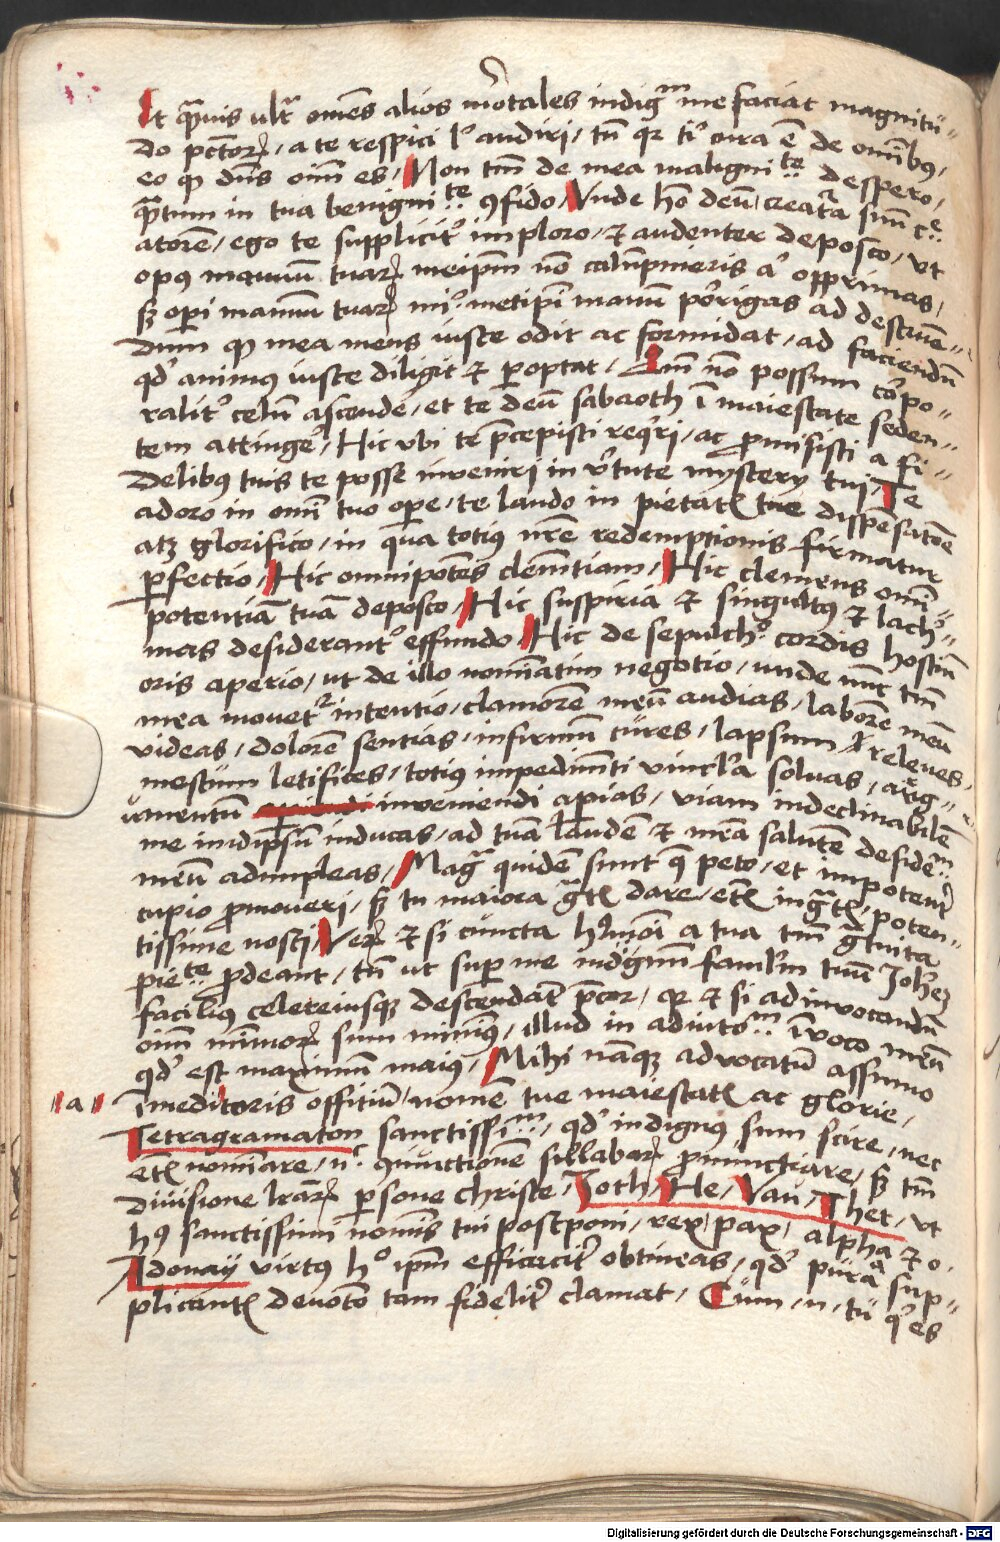 Et q̃uis ult̃ om̄es alios mortales indigm̄ me faciat magnitu„
do pctor̄, a te respici ł audiri, tn̄ qr ti cura ē de om̄ibus,
eo qz dn̄s oīm es, Non tm̄ de mea maligni..te despero,
q̃ntum in tua benigni..te ꝯfido, Unde hō deū, creat̃a sūm c..e
atorē, ego te suppliciť imploro, et audenter deposco, ut
opus manuū tuaꝝ meipm̄ nō calūpnieris aͦ opprimas,
sꝫ operi manuū tuaꝝ mi metipi manū porrigas ad destruē„
dum qz mea mens iuste odit ac formidat, ad faciendū
qd̓ animus iuste diligit et p̱optat, Qm̄ nō possum corpo„
raliť celum ascendē, et te deū sabaoth ī maiestate seden„
tem attingē, Hic ubi te p̄cepisti reqͥri, ac promisisti a fi„
delibus tuis te posse inveniri in virtute mystery tui, Te
adoro in omī tuo oꝑe, te laudo in pietatꝭ tue dispensatōe
atqꝫ glorifico, in qua totius nr̄e redemptionis firmatur
perfectio, Hic omnipotēs clem̄tiam, Hic clemens omī„
potentiā tuā deposco, Hic suspiria et singultus et lach„
mas desiderantͦ effundo, Hic de sepulchͦ cordis hostiū
oris aperio, ut de illo nominatim negotio, unde nūc tm̄
mea movetͬ intentio, clamorē meū audias, laborē meū
videas, dolorē sentias, infirmū cures, lapsum releves,
mestum letifices, totius impedimīti vincl̃a solvas, arg„
umentū inveniendi aperias, viam indeclinabilē
me inidip̄sū inducas, ad tuā laudē et meā salutē desideͫ..
meū adimpleas, Magͣ quidē sunt q̄ peto, et impotenter
cupio promoveri, sꝫ tu maiora gͣtꝭ dare, etꝭ ingͣtꝭ, poten„
tissime nosti, Veꝝ et si cuncta hͦmōi a tua tm̄ gͣtuita
pie..te ꝓdeant, tn̄ ut super me indignū famlm̄ tuū Joħez
facilius celereiusqꝫ descendāt p̄cor, qr et si ad invocandū
oīm minoꝝ sum minimus, illud in adiutoͫ.. īvoco meū
qd̓ est maximum maius, Mihi nāqꝫ advocatū assumo
„a„ īmeditoris offitiū, nomē tue maiestatꝭ ac glorie,
Tetragramaton sanctissiͫ.., qd̓ indignus sum scire, nec
etꝭ nominare, nͥ ꝯiunctionē sillabaꝝ pronunctiare, sꝫ tm̄
divisione lr̄aꝝ persone christe, Joth, He, Vau, Thet, ut
hͥ sanctissimi nominis tui postponi, rex, pax, alpha et o,
Adonay virtus hͦ ipm̄ efficaciť obtineas, qd̓ pura sup„
plicantꝭ devotō tam fideliť clamat, Cum, n, tu qͥ es
Digitalisierung gefördert durch die Deutsche Forschungsgemeinschaft - DFG